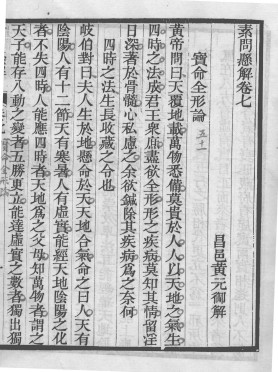 素問懸解卷七
昌邑黃元御解
寶命全形論 五十一
黃帝問曰天覆地載萬物悉備莫貴於人人以天地之氣生
四時之法成君王衆庶盡欲全形形之疾病莫知其情留淫
日深著於骨髓心私慮之余欲鍼除其疾病爲之奈何
四時之法生長收藏之令也
岐伯對曰夫人生於地懸命於天天地合氣命之曰人天有
陰陽人有十二節天有寒暑人有虛實能經天地陰陽之化
者不失四時人能應四時者天地爲之父母知萬物者謂之
天子能存八動之變者五勝更立能達虛實之數者獨出獨